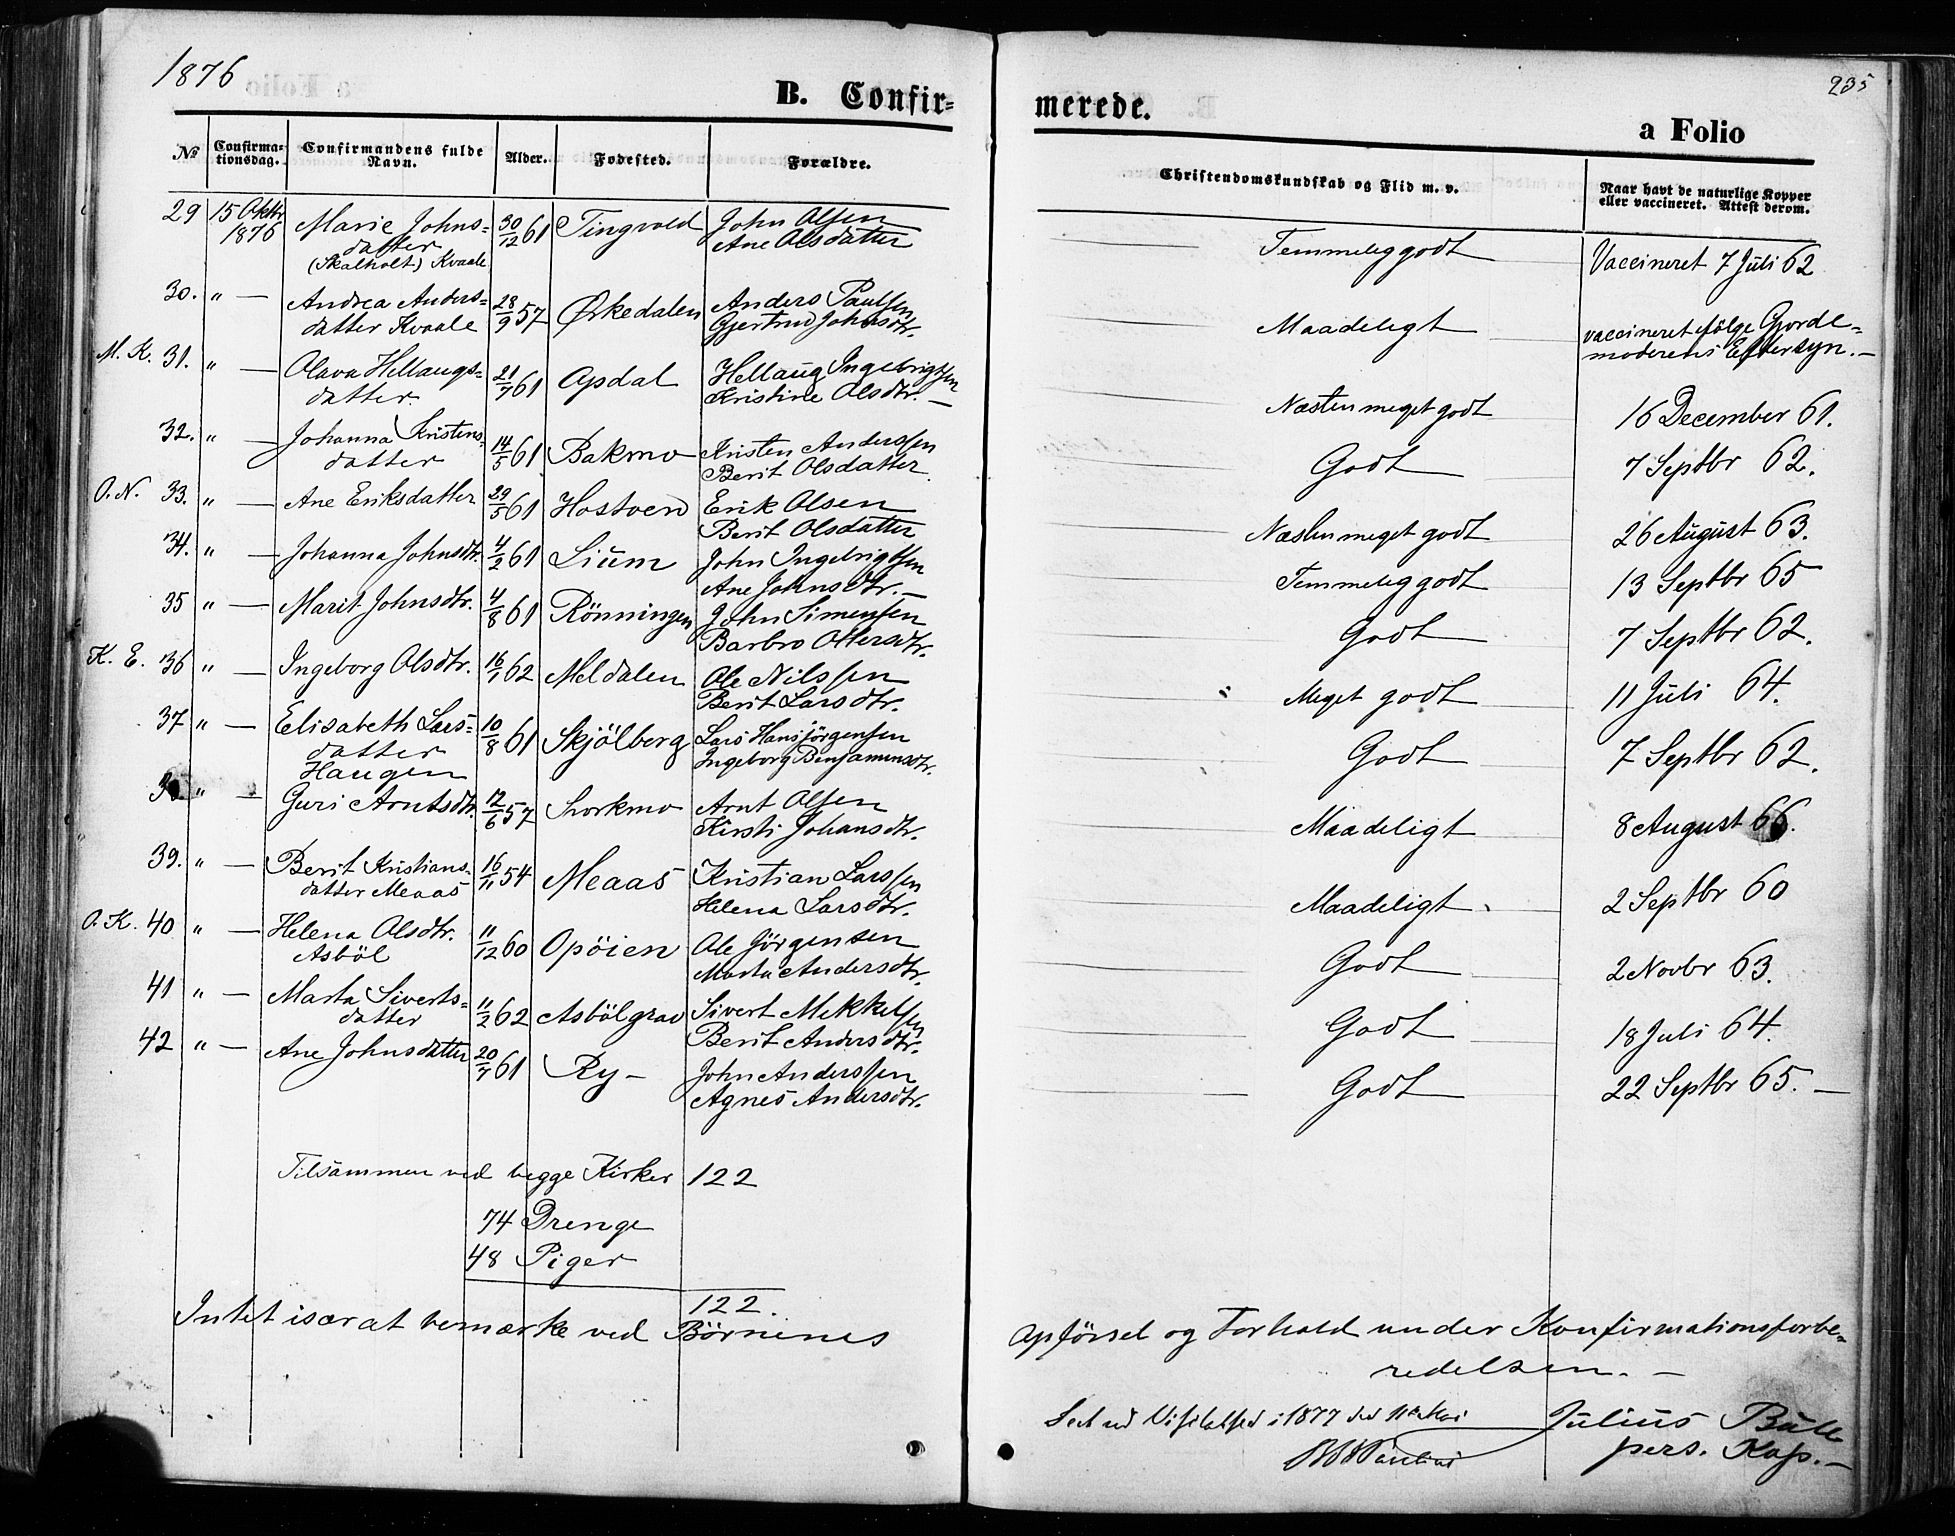 1876
B. Confir=
№
Confirma=
tionsdag.
Confirmandens fulde
Navn.
Alder.
Fødested.
Forældre.
29 15 Oktbr 1876 Marie Johns=
datter
(Skalholt) Kvaale
30/12 61 Tingvold John Olsen
Ane Olsdatter
30. " — Andrea Anders=
datter Kvaale
28/9 57 Ørkedalen Anders Paulsen
Gjertrud Johnsdtr.
M. K. 31. " — Olava Hellaugs=
datter.
21/7 61 Opdal Hellaug Ingebrigtsen
Kristine Olsdtr. —
32. " — Johanna Kristens=
datter
14/5 61 Bakmo Kristen Anderssen
Berit Olsdatter
O. N. 33. " — Ane Eriksdatter 29/5 61 Hostven Erik Olsen
Berit Olsdatter
34. " — Johanna Johnsdtr. 4/2 61 Lium John Ingebrigtsen
Ane Johnsdtr. —
35 " — Marit Johnsdtr. 4/8 61 Rönningen John Simensen
Barbro Ottersdtr.
K. E. 36 " — Ingeborg Olsdtr. 16/1 62 Meldalen Ole Nilssen
Berit Larsdtr.
37 " — Elisabeth Lars=
datter
Haugen
10/8 61 Skjölberg Lars Hansjörgensen
Ingeborg Benjaminsdtr.
" — Guri Arntsdtr. 12/6 57 Storkmo Arnt Olsen
Kirsti Johansdtr.
39. " — Berit Kristians=
datter Meaas
16/11 54 Meaas Kristian Larssen
Helena Larsdtr.
O. K. 40 " — Helena Olsdtr.
Asböl
11/12 60 Opöien Ole Jörgensen
Marta Andersdtr.
41 " — Marta Siverts=
datter
11/2 62 Asbölgrav Sivert Mikkelsen
Berit Andersdtr.
42 " — Ane Johnsdatter 20/7 61 Ry — John Anderssen
Agnes Andersdtr.
Tilsammen ved begge Kirker 122
74 Drenge
48 Piger
122.
Intet især at bemærke ved Börnenes
235
merede.
a Folio
Christendomskundskab og Flid m. v.
Naar havt de naturlige Kopper
eller vaccineret. Attest derom.
Temmeleg godt Vaccineret 7 Juli 62
Maadeligt vaccineret efölge Gjorde=
moderens Eftersyn. —
Næsten meget godt 16 December 61.
Godt 7 Septbr 62.
Næsten meget godt 26 August 63.
Temmeleg godt 13 Septbr 65
Godt 7 Septbr 62.
Meget godt 11 Juli 64.
Godt 7 Septbr 62.
Maadeligt 8 August 66.
Maadeligt 2 Septbr 60
Godt 2 Novbr 63.
Godt 18 Juli 64.
Godt 22 Septbr 65. —
Opförsel og Forhold under Konfirmationsforbe=
redelsen. —
Seet ved Visitatsen i 1877 den 11te Mai
Julius Bull
pers. Kap. —